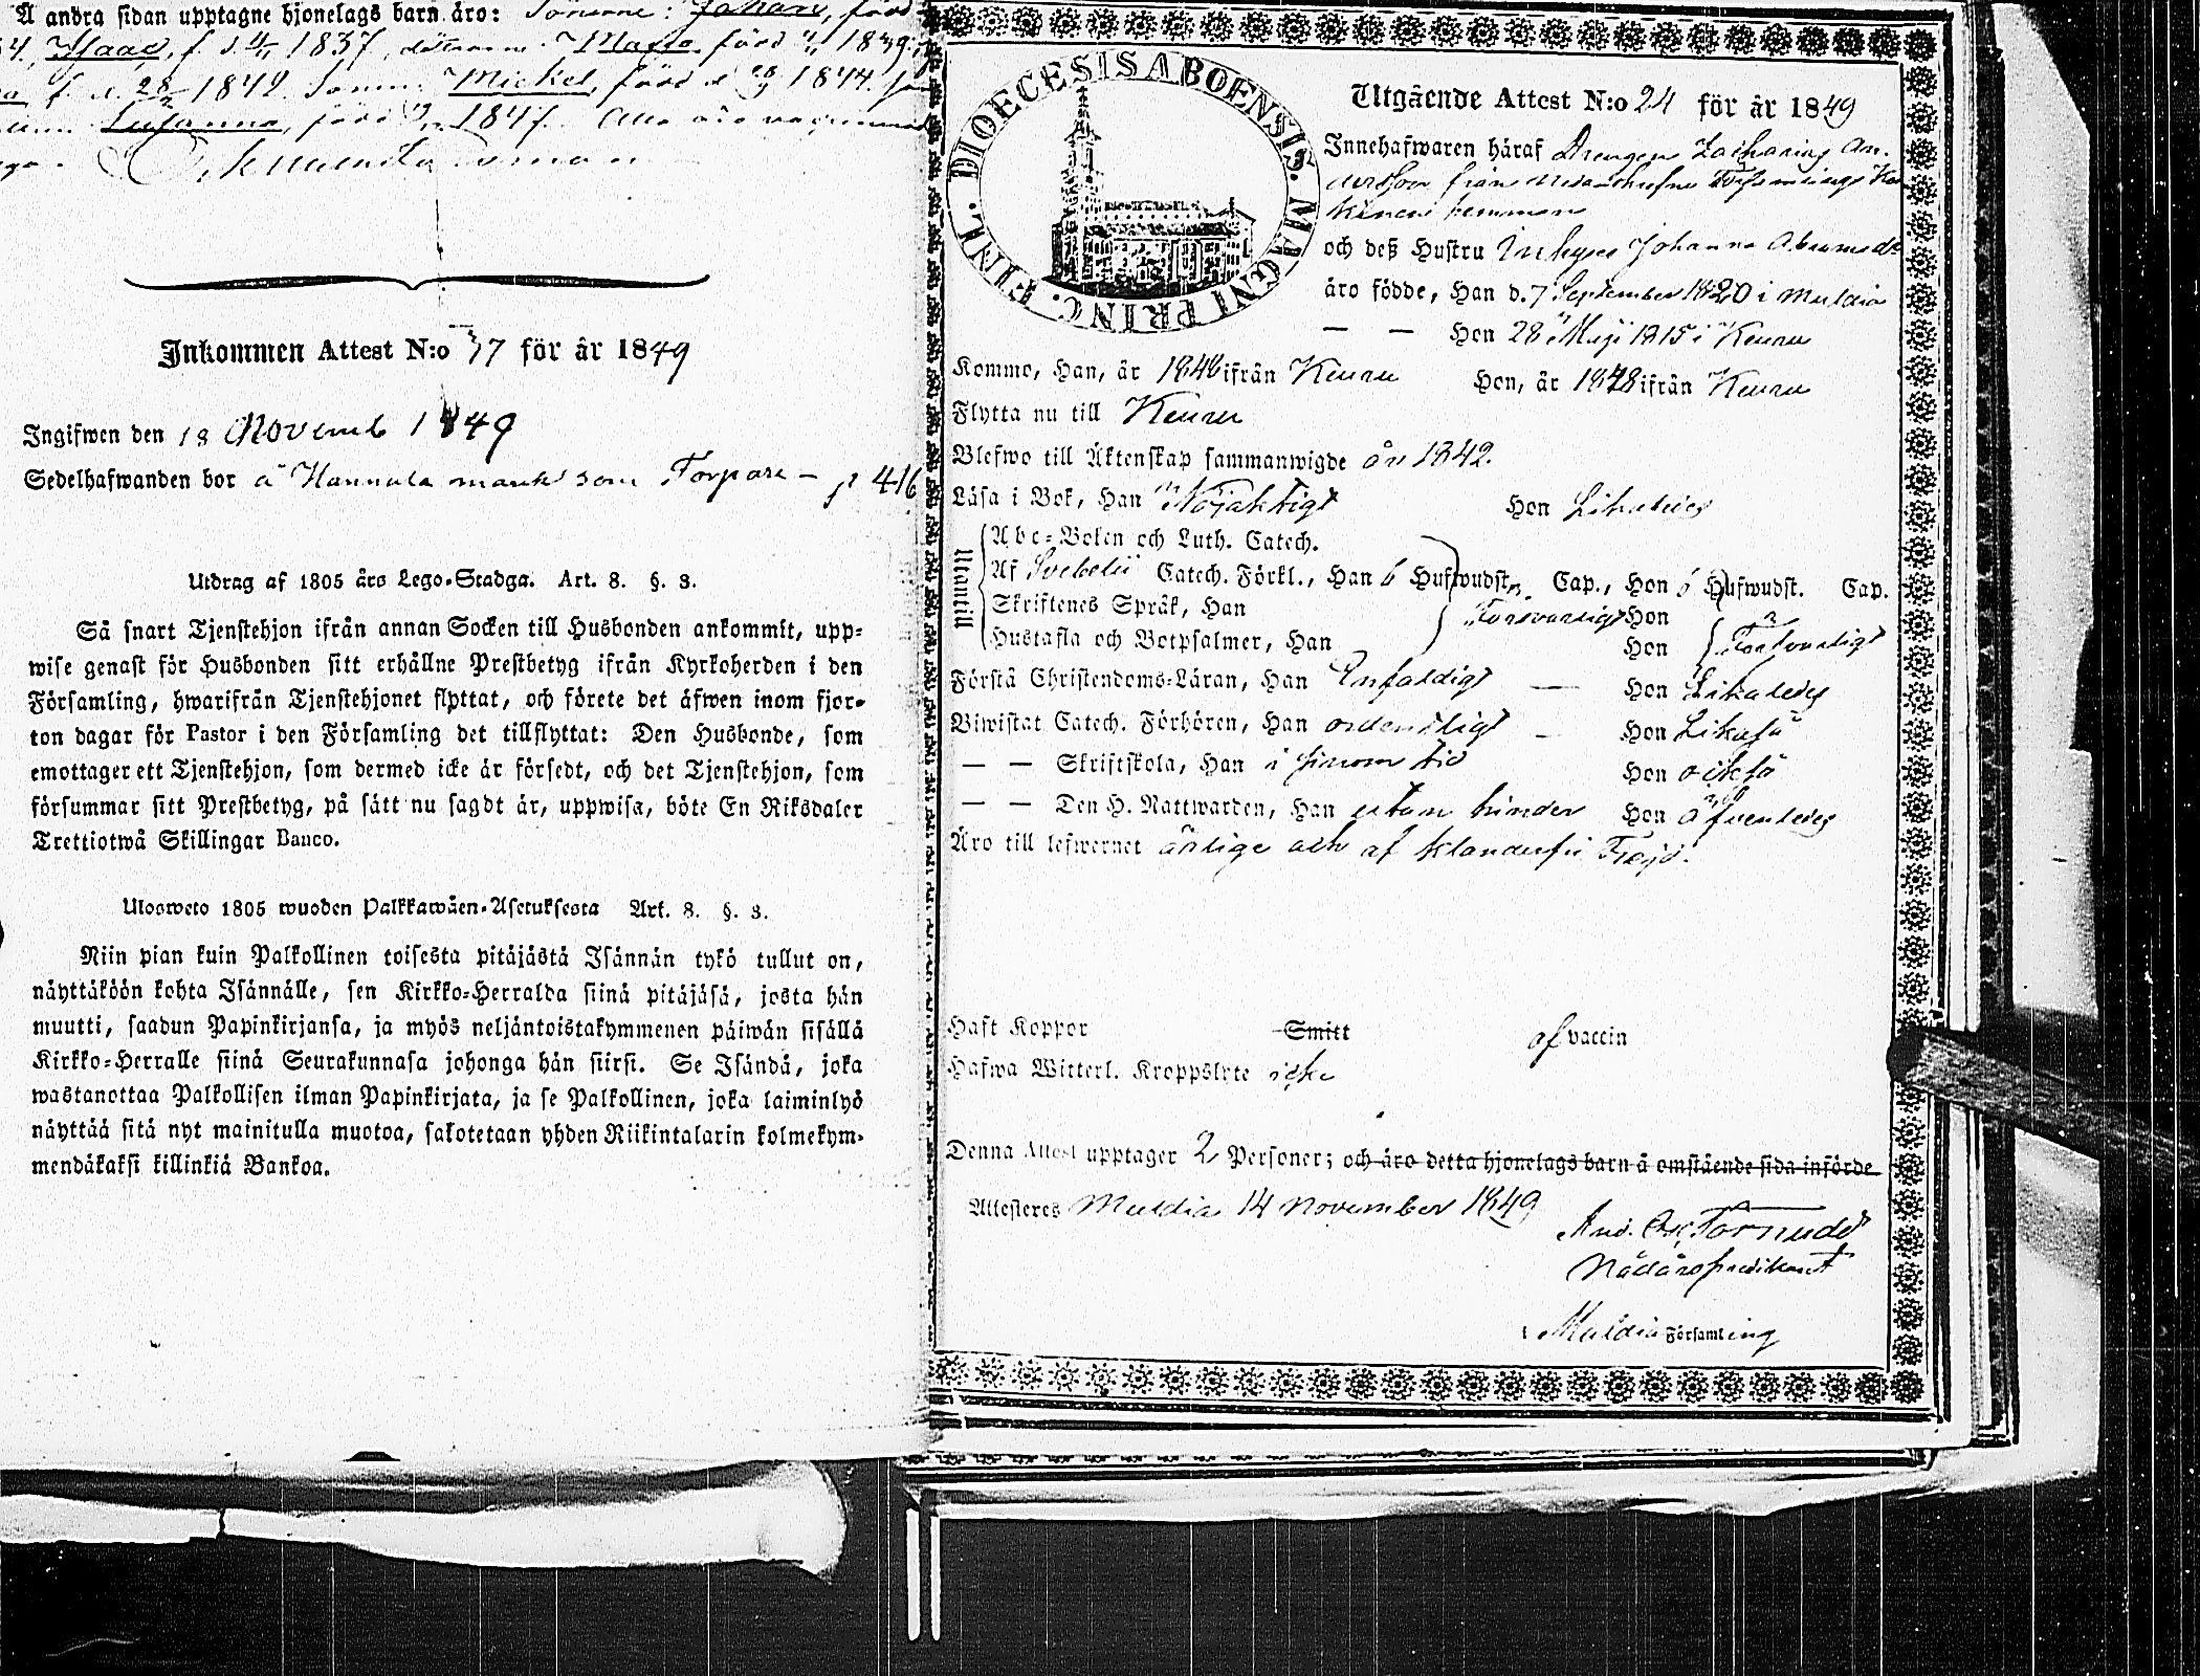 Å andra sidan upptagne hjonelags barn äro: Sönerne: Johan, född
Isaac, f. d. 1837, döttrarne Maja född 1839,
f. d. 28/2 1842. Sonen Mickel, född d 1844.
Susanna, född 1847. Alla äro
Inkommen Attest N:o 37 för år 1849
Ingifwen den 18 Novemb 1849
Sedelhafwanden bor å Hannula mark som Torpare – p 416
Utdrag af 1805 års Lego-Stadga. Art. 8. §. 3.
Så snart Tjenstehjon ifrån annan Socken till Husbonden ankommit, upp-
wise genast för Husbonden sitt erhållne Prestbetyg ifrån Kyrkoherden i den
Församling, hwarifrån Tjenstehjonet flyttat, och förete det äfwen inom fjor-
ton dagar för Pastor i den Församling det tillflyttat: Den Husbonde, som
emottager ett Tjenstehjon, som dermed icke är försedt, och det Tjenstehjon, som
försummar sitt Prestbetyg, på sätt nu sagdt är, uppwisa, böte En Riksdaler
Trettiotwå Skillingar Banco.
Ulosweto 1805 wuoden Palkkawäen-Asetuksesta Art. 8. §. 3.
Niin pian kuin Palkollinen toisesta pitäjästä Isännän tykö tullut on,
näyttäköön kohta Isännälle, sen Kirkko-Herralda siinä pitäjäsä, josta hän
muutti, saadun Papinkirjansa, ja myös neljäntoistakymmenen päiwän sisällä
Kirkko-Herralle siinä Seurakunnasa johonga hän siirsi. Se Isändä, joka
wastanottaa Palkollisen ilman Papinkirjata, ja se Palkollinen, joka laiminlyö
näyttää sitä nyt mainitulla muotoa, sakotetaan yhden Riikintalarin kolmekym-
mendäkaksi killinkiä Bankoa.
DIOECESIS ABOENSIS. MAGNI PRINC. FINL.
Utgående Attest N:o 24 för år 1849
Innehafwaren häraf Drengen Zacharias An-
dersson från
kinen hemman
och deß Hustru Inhyses Johanna Abramsdr
äro födde, Han d. 7 September 1820 i Muldia
— — Hon 28 Maji 1815 i Keuru
Komne, Han, år 1848 ifrån Keuru Hon, år 1848 ifrån Keuru
Flytta nu till Keuru
Blefwo till Äktenskap sammanwigde år 1842.
Läsa i Bok, Han Nöjaktigt Hon Likaledes
Utantill
Abc-Boken och Luth. Catech.
Af Svebelii Catech. Förkl., Han 6 Hufwudst. Cap., Hon 6 Hufwudst. Cap.
Skriftenes Språk, Han Försvarligt Hon
Hustafla och Botpsalmer, Han Hon Försvarligt
Förstå Christendoms-Läran, Han Enfaldigt — Hon Likaledes
Biwistat Catech. Förhören, Han ordentligt — Hon Likaså
— — Skriftskola, Han i sinom tid Hon också
— — Den H. Nattwarden, Han utan hinder Hon äfvenledes
Äro till lefwernet ärlige och af klanderfri Frejd.
Haft Koppor Smitt af vaccin
Hafwa Witterl. Kroppslyte icke
Denna Attest upptager 2 Personer; och äro detta hjonelags barn å omstående sida införde
Attesteres Muldia 14 November 1849
And. Osc. Törnudd
Nådårspredikant
i Muldia Församling